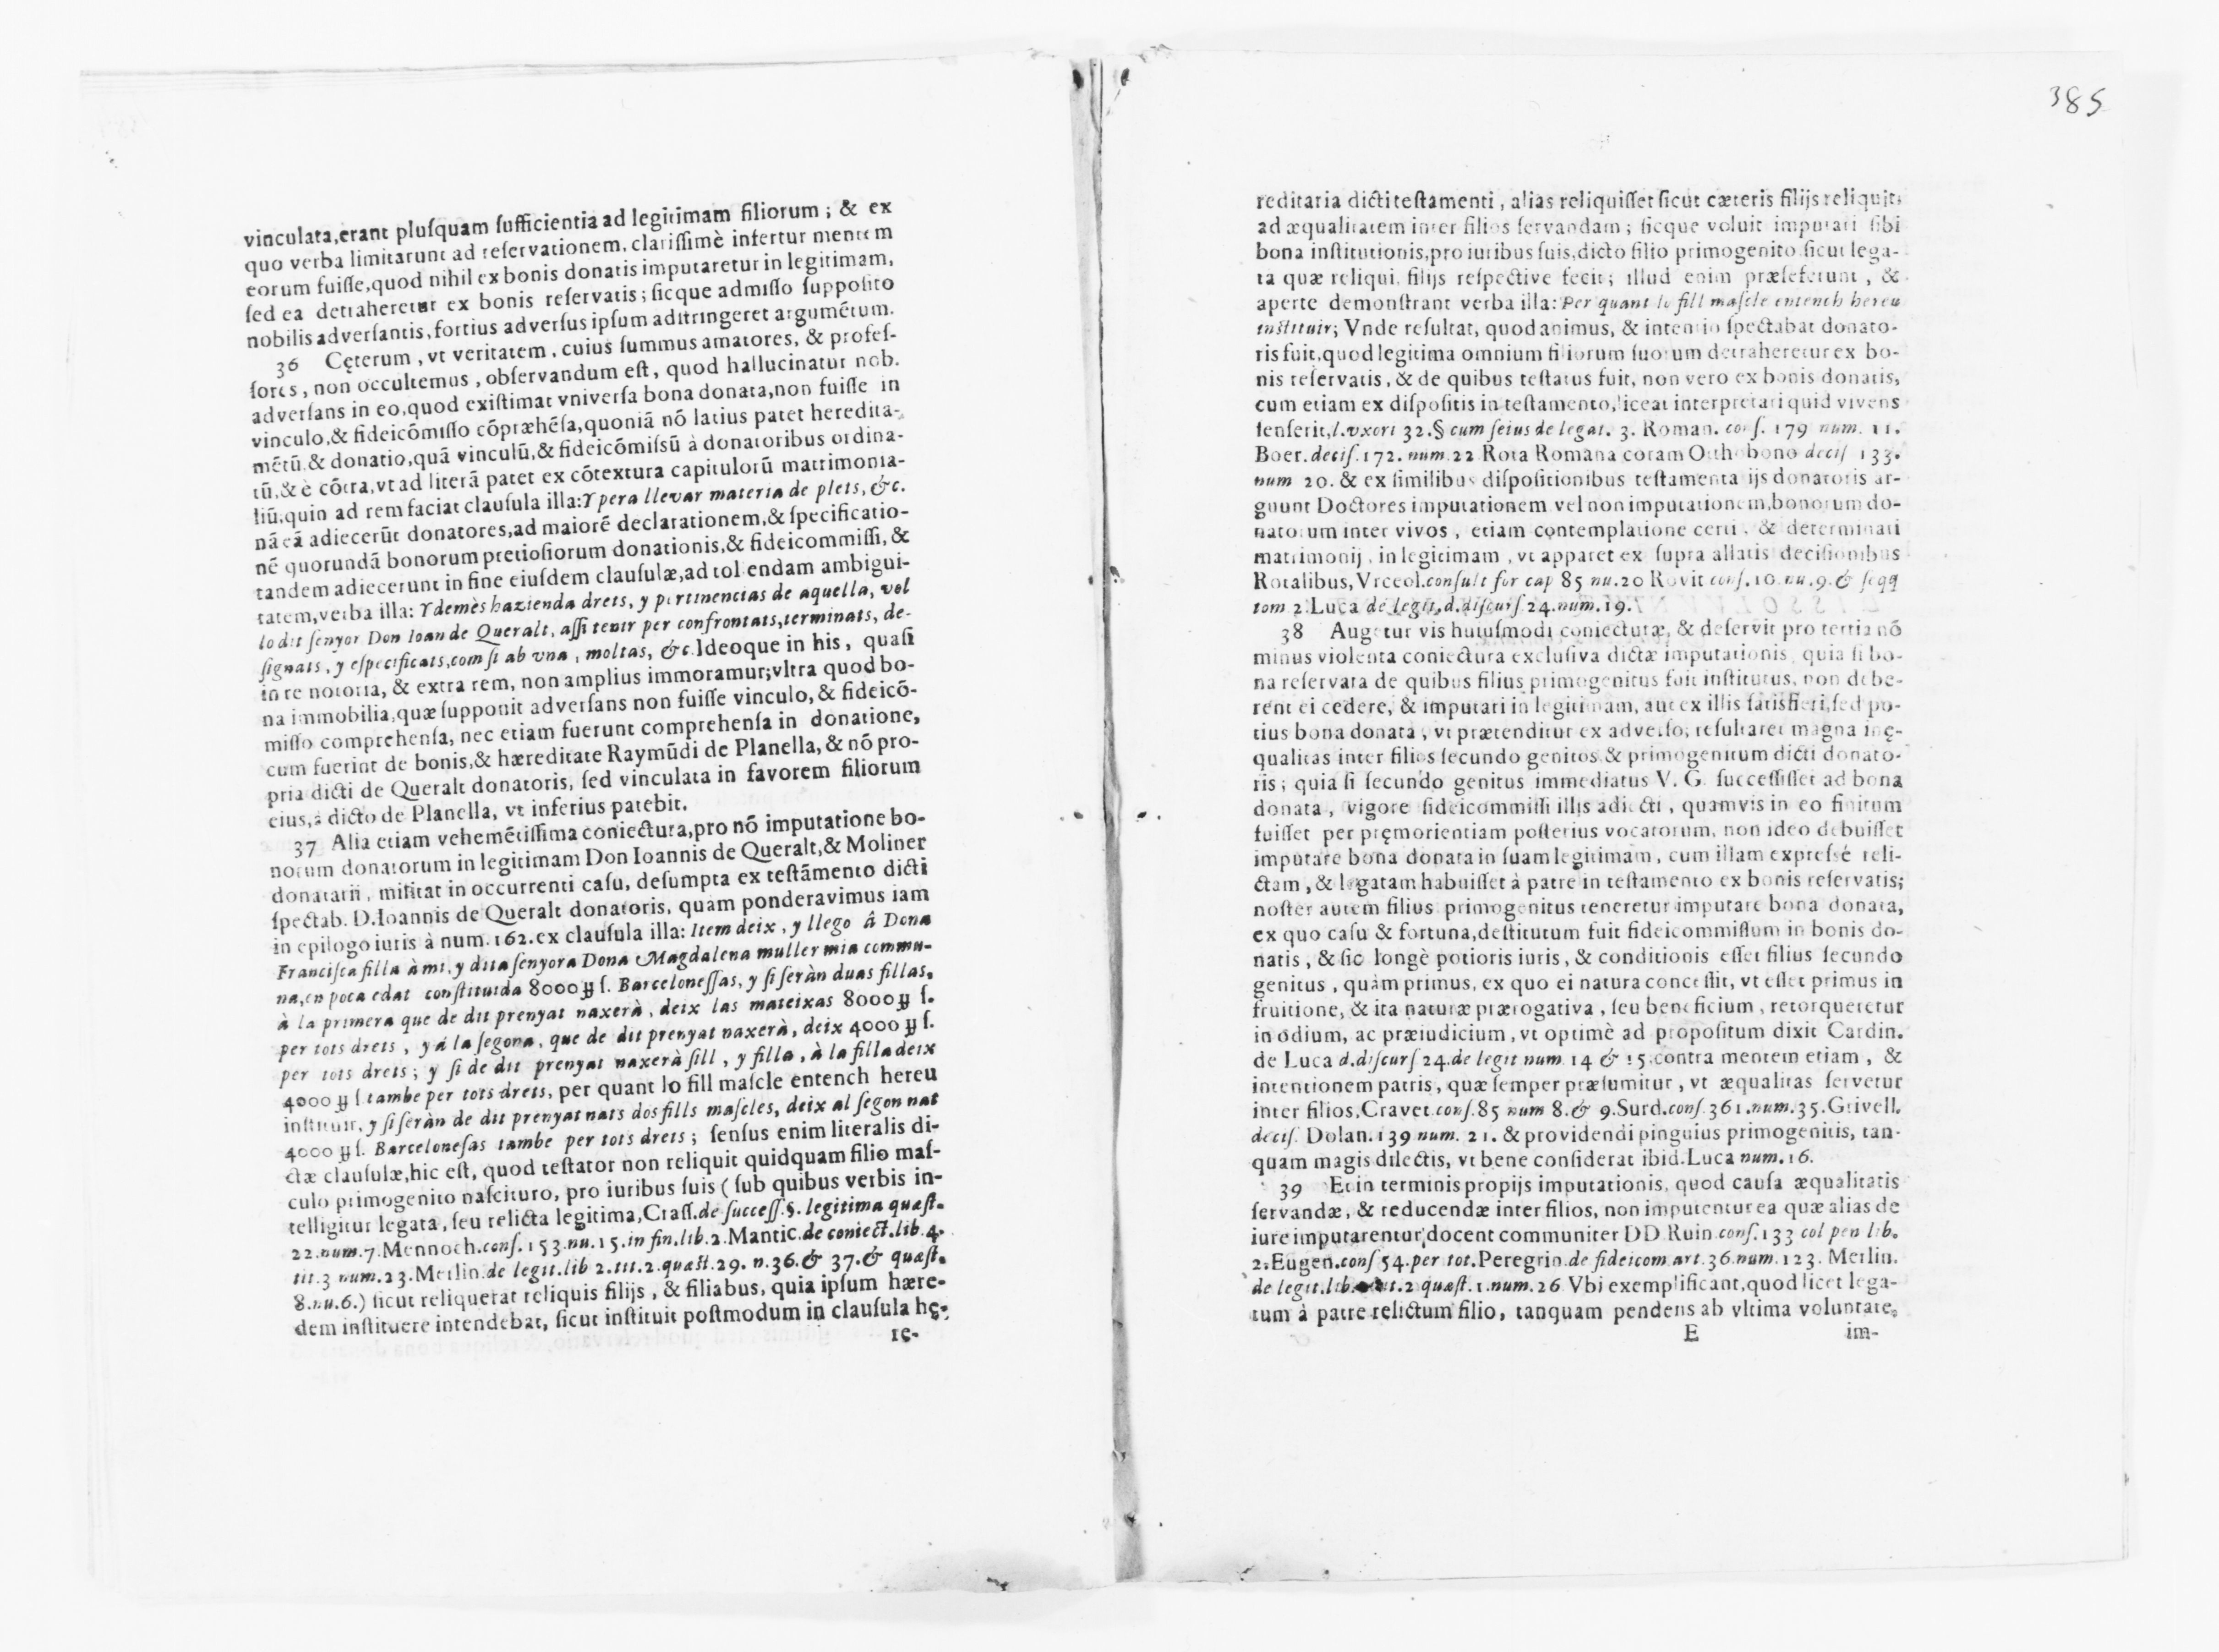 vinculata,erant pluſquam ſufficientia ad legitimam filiorum ; & ex
quo verba limitarunt ad reſervationem, clariſſimè infertur mentem
eorum fuiſſe,quod nihil ex bonis donatis imputaretur in legitimam,
ſed ea detraheretur ex bonis reſervatis; ſicque admiſſo ſuppoſito
nobilis adverſantis, fortius adverſus ipſum aditringeret argumētum.
36 Cęterum , vt veritatem , cuius ſummus amatores, & profeſ-
ſores , non occultemus , obſervandum eſt, quod hallucinatur nob.
adverſans in eo,quod exiſtimat vniverſa bona donata,non fuiſſe in
vinculo,& fideicōmiſſo cōpræhēſa,quoniā nō latius patet heredita-
mētū,& donatio,quā vinculū,& fideicōmiſsū à donatoribus ordina-
tū,& è cōtra,vt ad literā patet ex cōtextura capitulorū matrimonia-
liū,quin ad rem faciat clauſula illa:Y pera llevar materia de plets, &c.
nā eā adiecerūt donatores,ad maiorē declarationem,& ſpecificatio-
nē quorundā bonorum pretioſiorum donationis,& fideicommiſſi, &
tandem adiecerunt in fine eiuſdem clauſulæ,ad tol endam ambigui-
tatem,verba illa: Y demès hazienda drets, y pertinencias de aquella, vol
lo dit ſenyor Don Ioan de Queralt, aſſi tenir per confrontats,terminats, de-
ſignats , y eſpecificats,com ſi ab vna , moltas, &c.Ideoque in his , quaſi
in re notoria, & extra rem, non amplius immoramur;vltra quod bo-
na immobilia,quæ ſupponit adverſans non fuiſſe vinculo,& fideicō-
miſſo comprehenſa, nec etiam fuerunt comprehenſa in donatione,
cum fuerint de bonis,& hæreditate Raymūdi de Planella, & nō pro-
pria dicti de Queralt donatoris, ſed vinculata in favorem filiorum
eius,à dicto de Planella, vt inferius patebit.
37 Alia etiam vehemētiſſima coniectura,pro nō imputatione bo-
norum donatorum in legitimam Don Ioannis de Queralt,& Moliner
donatarii , militat in occurrenti caſu, deſumpta ex teſtāmento dicti
ſpectab. D.Ioannis de Queralt donatoris, quam ponderavimus iam
in epilogo iuris à num.162.ex clauſula illa: Item deix , y llego â Dona
Franciſca filla à mi, y dita ſenyora Dona Magdalena muller mia commu-
na,en poca edat conſtituida 8000 ﬀ ſ. Barceloneſſas, y ſi ſeràn duas fillas,
à la primera que de dit prenyat naxerà , deix las mateixas 8000 ﬀ ſ.
per tots drets , y á la ſegona , que de dit prenyat naxerà, deix 4000 ﬀ ſ.
per tots drets ; y ſi de dit prenyat naxerà fill , y filla , à la filla deix
4000 ﬀ ſ tambe per tots drets, per quant lo fill maſcle entench hereu
inſtituir, y ſi ſeràn de dit prenyat nats dos fills maſcles, deix al ſegon nat
4000 ﬀ ſ. Barceloneſas tambe per tots drets ; ſenſus enim literalis di-
ctæ clauſulæ,hic eſt, quod teſtator non reliquit quidquam filio maſ-
culo primogenito naſcituro, pro iuribus ſuis ( ſub quibus verbis in-
telligitur legata, ſeu relicta legitima,Craſſ.de ſucceſſ.§. legitima quæſt.
22.num.7.Mennoch.conſ.153.nu.15.in fin.lib.2.Mantic.de coniect.lib.4.
tit.3 num.23.Merlin.de legit.lib 2.tit.2.quæſt.29. n.36.& 37.& quæſt.
8.nu.6.) ſicut reliquerat reliquis filijs , & filiabus, quia ipſum hære-
dem inſtituere intendebat, ſicut inſtituit poſtmodum in clauſula hę-
re-
385
reditaria dicti teſtamenti , alias reliquiſſet ſicut cæteris filijs reliquit,
ad æqualitatem inter filios ſervandam ; ſicque voluit imputari ſibi
bona inſtitutionis,pro iuribus ſuis,dicto filio primogenito ſicut lega-
ta quæ reliqui, filijs reſpective fecit; illud enim præſeferunt , &
aperte demonſtrant verba illa: Per quant lo fill maſcle entench hereu
inſtituir; Vnde reſultat, quod animus, & intentio ſpectabat donato-
ris fuit,quod legitima omnium filiorum ſuorum detraheretur ex bo-
nis reſervatis , & de quibus teſtatus fuit, non vero ex bonis donatis,
cum etiam ex diſpoſitis in teſtamento,liceat interpretari quid vivens
ſenſerit,l.vxori 32.§ cum ſeius de legat. 3. Roman. conſ. 179 num. 11.
Boer.deciſ.172. num.22 Rota Romana coram Otthobono deciſ 133.
num 20. & ex ſimilibus diſpoſitionibus teſtamenta ijs donatoris ar-
guunt Doctores imputationem vel non imputationem,bonorum do-
natorum inter vivos , etiam contemplatione certi , & determinati
matrimonij , in legitimam , vt apparet ex ſupra allatis deciſionibus
Rotalibus, Vrceol.conſult for cap 85 nu.20 Rovit conſ.10.nu.9.& ſeqq
tom 2.Luca de legit,d.diſcurſ 24.num.19.
38 Augetur vis huiuſmodi coniecturæ, & deſervit pro tertia nō
minus violenta coniectura excluſiva dictæ imputationis, quia ſi bo-
na reſervata de quibus filius primogenitus fuit inſtitutus, non debe-
rent ei cedere, & imputari in legitimam, aut ex illis ſatisfieri,ſed po-
tius bona donata , vt prætenditur ex adverſo, reſultaret magna inę-
qualitas inter filios ſecundo genitos & primogenitum dicti donato-
ris ; quia ſi ſecundo genitus immediatus V. G. ſucceſſiſſet ad bona
donata , vigore fideicommiſſi illis adiecti , quamvis in eo finitum
fuiſſet per pręmorientiam poſterius vocatorum, non ideo debuiſſet
imputare bona donata in ſuam legitimam , cum illam expreſsé reli-
ctam , & legatam habuiſſet à patre in teſtamento ex bonis reſervatis;
noſter autem filius primogenitus teneretur imputare bona donata,
ex quo caſu & fortuna,deſtitutum fuit fideicommiſſum in bonis do-
natis , & ſic longè potioris iuris , & conditionis eſſet filius ſecundo
genitus , quàm primus, ex quo ei natura conceſſit, vt eſſet primus in
fruitione, & ita naturæ prærogativa , ſeu beneficium , retorqueretur
in odium, ac præiudicium, vt optimè ad propoſitum dixit Cardin.
de Luca d.diſcurſ 24.de legit num 14 & 15.contra mentem etiam , &
intentionem patris, quæ ſemper præſumitur , vt æqualitas ſervetur
inter filios,Cravet.conſ.85 num 8.& 9.Surd.conſ.361.num.35.Grivell.
deciſ. Dolan.139 num. 21. & providendi pinguius primogenitis, tan-
quam magis dilectis, vt bene conſiderat ibid.Luca num.16.
39 Et in terminis propijs imputationis, quod cauſa æqualitatis
ſervandæ, & reducendæ inter filios, non imputentur ea quæ alias de
iure imputarentur,docent communiter DD Ruin.conſ.133 col pen lib.
2.Eugen.conſ 54.per tot.Peregrin.de fideicom.art.36.num.123. Merlin.
de legit.lib. .2 quæſt.1.num.26 Vbi exemplificant,quod licet lega-
tum à patre relictum filio, tanquam pendens ab vltima voluntate,
E im-